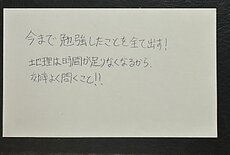 今まで勉強したことを全て出す!
地理は時間が足りなくなるから、
効率よく問くこと!!